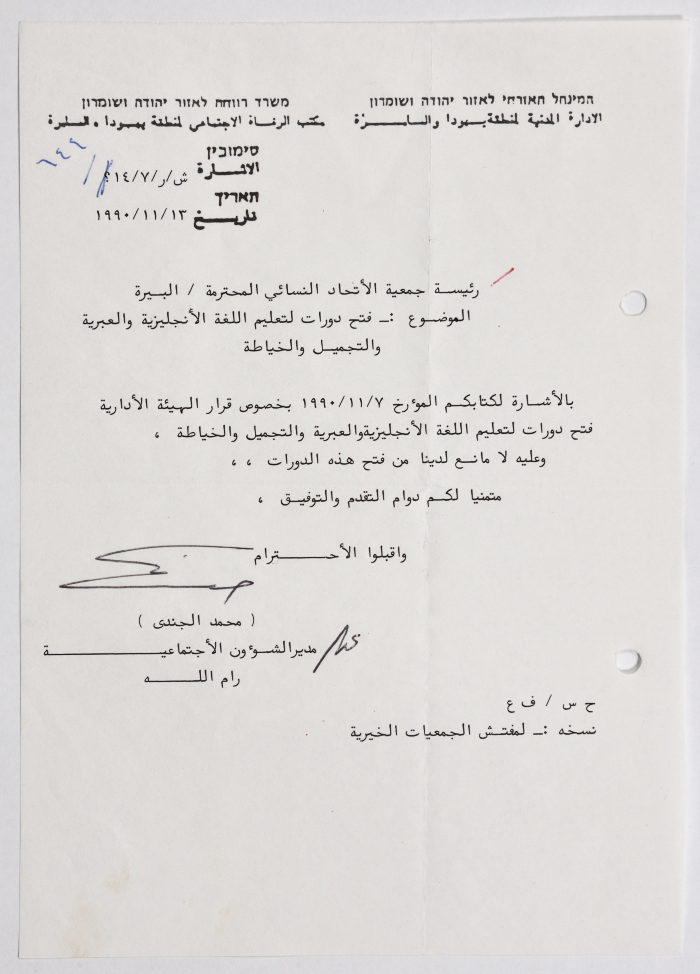 המינהל האזרחי לאזור יהודה ושומרון
الادارة المدنية لمنطقة يهودا والسامرة
משרד רווחה לאזור יהודה ושומרון
مكتب الرفاة الاجتماعي لمنطقة يهودا والسامرة
סימוכין
الاشارة ش/ر/١٤/٧
٦٤٤
תאריך
تاريخ ١٩٩٠/١١/١٣
رئيسة جمعية الأتحاد النسائي المحترمة / البيرة
الموضوع :ـ فتح دورات لتعليم اللغة الأنجليزية والعبرية
والتجميل والخياطة
بالأشارة لكتابكم الموٴرخ ١٩٩٠/١١/٧ بخصوص قرار الهيئة الأدارية
فتح دورات لتعليم اللغة الأنجليزيةوالعبرية والتجميل والخياطة ،
وعليه لا مانع لدينا من فتح هذه الدورات ، ،
متمنيا لكم دوام التقدم والتوفيق ،
واقبلوا الأحترام
( محمد الجندى )
مديرالشوٴون الأجتماعية
رام الله
ح س / ف ع
نسخه :ـ لمفتش الجمعيات الخيرية